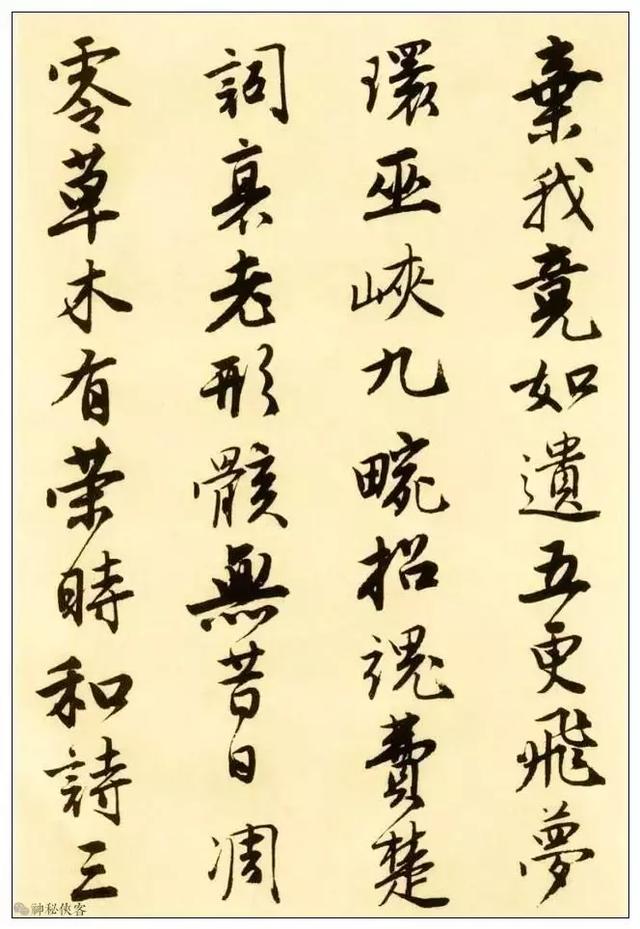 棄我竟如遺五更飛夢
環巫峽九畹招魂費楚
詞衰老形骸無昔日凋
零草木有榮時和詩三
神秘侠客